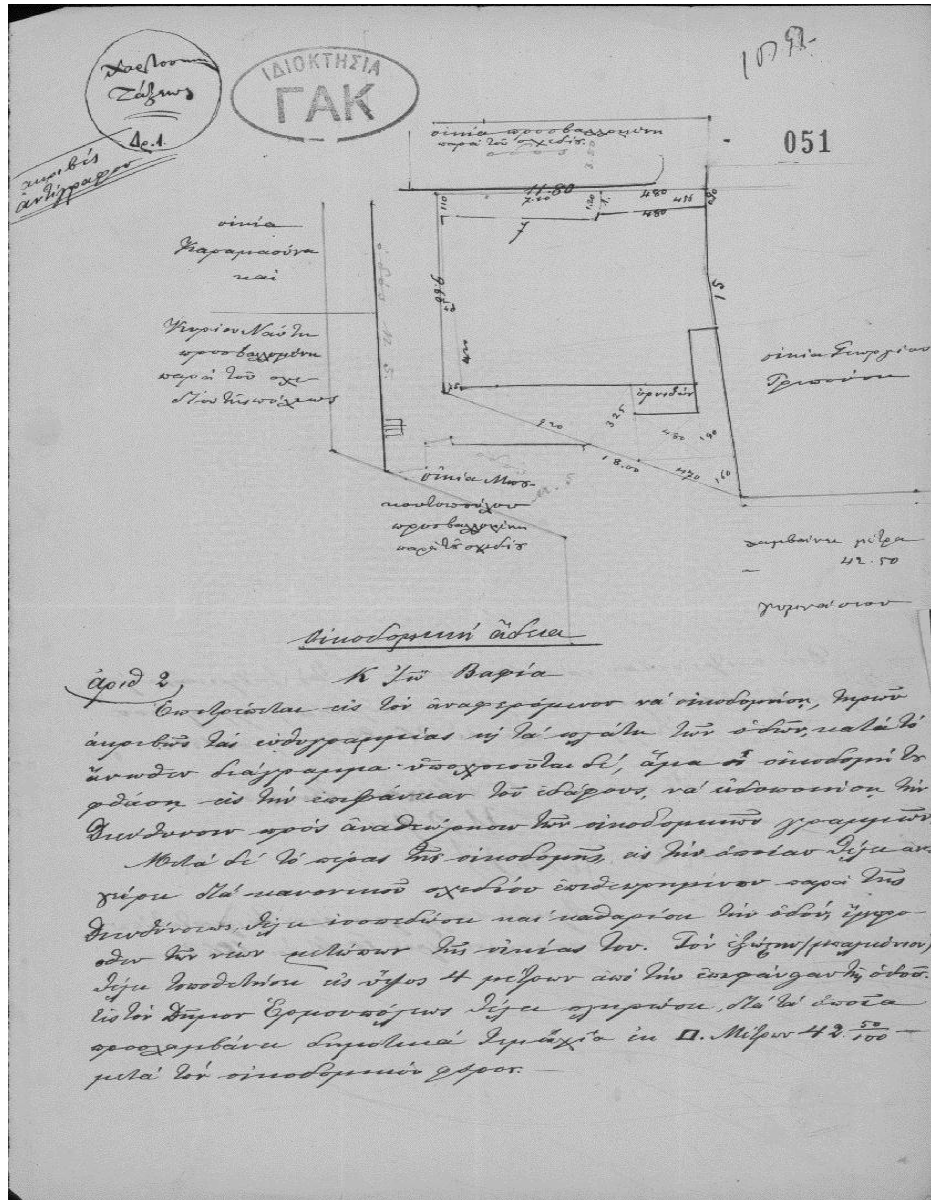 Χαρτόσημον
Τάξεως
Δρ. 1.
ἀκριβές
ἀντίγραφον
ΙΔΙΟΚΤΗΣΙΑ
ΓΑΚ
051
οἰκία προσβαλλομένη
παρὰ τοῦ σχεδίου
ὁδός 3.50
11.80
7.20
110
1.20
480
495
0.90
480
9.68
15
οἰκία
Καραμασούνα
καὶ
Κυρίου Ναύτη
προσβαλομένη
παρὰ τοῦ σχε
δίου τῆς πόλεως
οἰκία Γεωργίου
Γριπούση
ὀρνιθών
3.25
920
480
190
18.00
470
160
οἰκία Μπο
κουτοπούλου
προσβαλλομένη
παρὰ τοῦ σχεδίου
λαμβάνει μέτρα
42.50
γυμνάσιον
Οἰκοδομική ἄδεια
ἀριθ 2
Κ Ἰω Βαφία
Ἐπιτρέπεται εἰς τὸν ἀναφερόμενον νὰ οἰκοδομήσῃ, τηρῶν
ἀκριβῶς τὰς εὐθυγραμμίας κ τὰ πλάτη τῶν ὁδῶν, κατὰ τὸ
ἄνωθεν διάγραμμα ὑποχρεοῦται δέ, ἅμα ἡ οἰκοδομή τε
φθάσῃ εἰς τὴν ἐπιφάνειαν τοῦ ἐδάφους, νὰ εἰδοποιήσῃ τὴν
Διεύθυνσιν πρὸς ἀναθεώρησιν τῶν οἰκοδομικῶν γραμμῶν
Μετὰ δὲ τὸ πέρας τῆς οἰκοδομῆς, εἰς τὴν ὁποίαν θέλει ἀν
γείρει διὰ κανονικοῦ σχεδίου ἐπιθεωρημένου παρὰ τῆς
Διευθύνσεως, θέλει ἰσοπεδώσει καὶ καθαρίσει τὴν ὁδόν, ἔμπρο-
σθεν τῶν νέων μετώπων τῆς οἰκίας του. Τὸν ἐξώστην (μπαλκόνιον)
θέλει τοποθετήσει εἰς ὕψος 4 μέτρων ἀπὸ τὴν ἐπιφάνειαν τῆς ὁδοῦ.
Εἰς τὸν Δῆμον Ἑρμουπόλεως θέλει πληρώσει, διὰ τὰ ὁποῖα
προσλαμβάνει δημοτικὰ τεμάχια ἐκ □. Μέτρων 42 50/100 —
μετὰ τὸν οἰκοδομικὸν φόρον. —